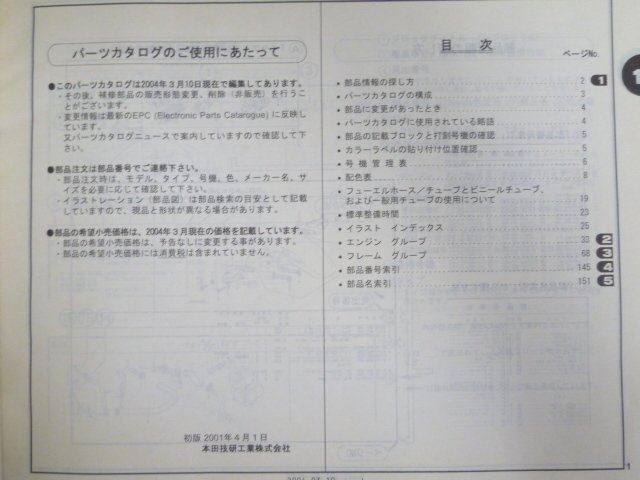 パーツカタログのご使用にあたって
●このパーツカタログは2004年3月10日現在で編集してあります。
・その後、補修部品の販売形態変更、削除（非販売）を行うこ
とがございます。
・変更情報は最新のEPC (Electronic Parts Catarogue) に反映し
ています。
又パーツカタログニュースで案内していますので確認して下
さい。
●部品注文は部品番号でご連絡下さい。
・部品注文時は、モデル、タイプ、号機、色、メーカー名、サ
イズを必要に応じて確認して下さい。
・イラストレーション（部品図）は部品検索の目安として記載
していますので、現品と形状が異なる場合があります。
●部品の希望小売価格は、2004年3月現在の価格を記載しています。
・部品の希望小売価格は、予告なしに変更する事があります。
・部品の希望小売価格には消費税は含まれていません。
初版 2001年4月1日
本田技研工業株式会社
目 次
ページNo.
• 部品情報の探し方 2 1
• パーツカタログの構成 3
• 部品に変更があったとき 4
• パーツカタログに使用されている略語 4
• 部品の記載ブロックと打刻号機の確認 5
• カラーラベルの貼り付け位置確認 5
• 号機管理表 6
• 配色表 8
• フューエルホース／チューブとビニールチューブ、
および一般用チューブの使用について 19
• 標準整備時間 23
• イラスト インデックス 25
• エンジン グループ 33 2
• フレーム グループ 68 3
• 部品番号索引 145 4
• 部品名索引 151 5
1
1